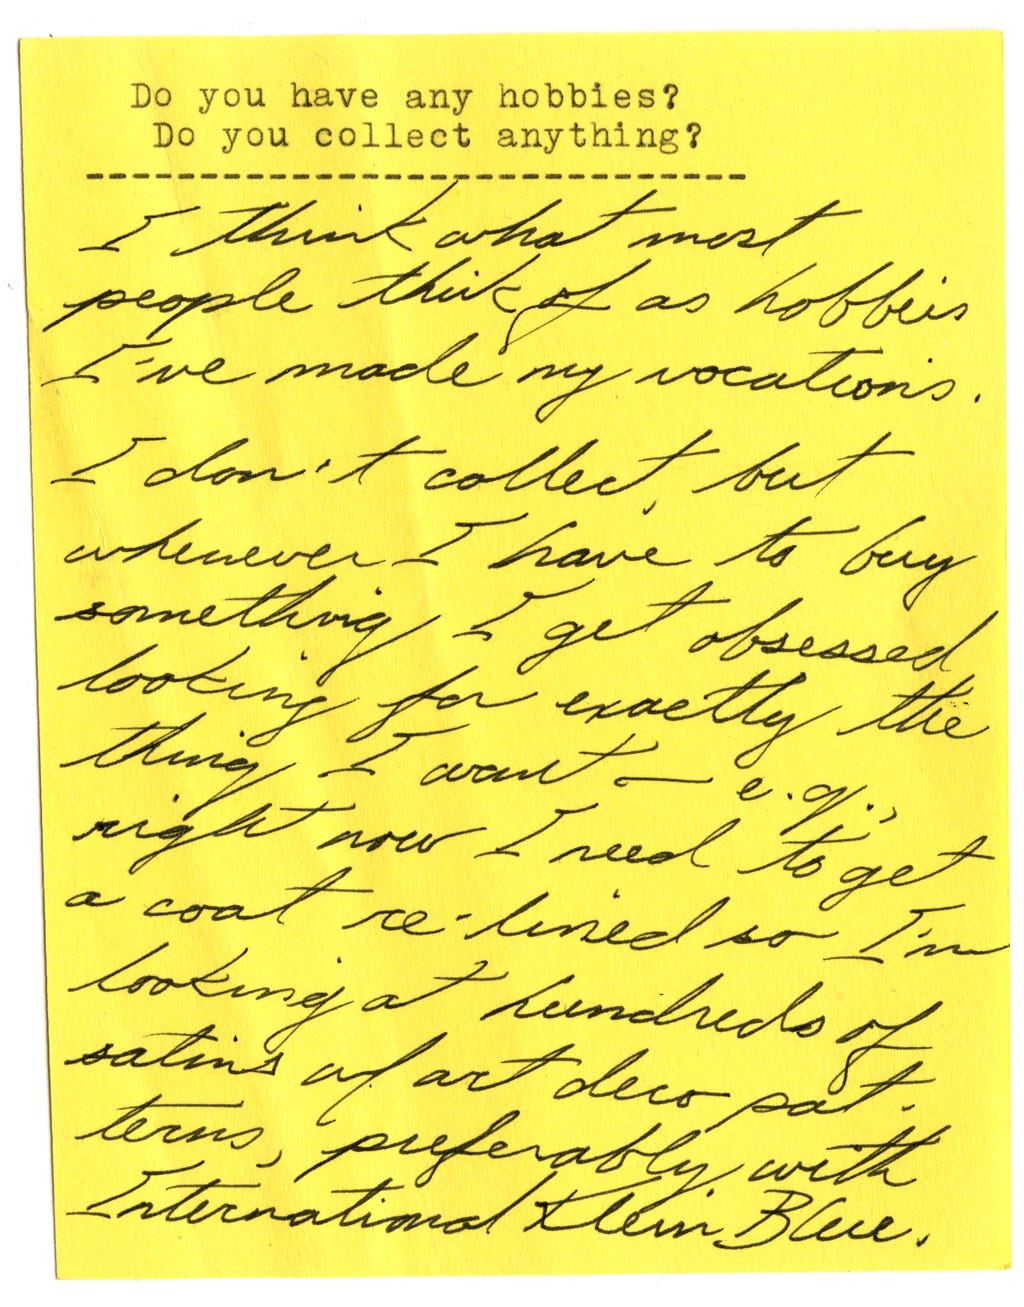 Do you have any hobbies?
Do you collect anything?
------------------------------
I think what most
people think of as hobbeis
I've made my vocations.
I don't collect, but
whenever I have to buy
something, I get obsessed
looking for exactly the
thing I want — e.g.,
right now I need to get
a coat re-lined so I'm
looking at hundreds of
satins w/ art deco pat-
terns, preferably with
International Klein Blue.